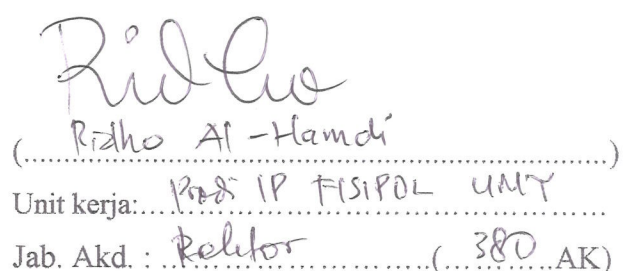 Ridho
(Ridho Al-Hamdi)
Unit kerja: Prodi IP FISIPOL UMY
Jab. Akd. : Rektor (380 AK)